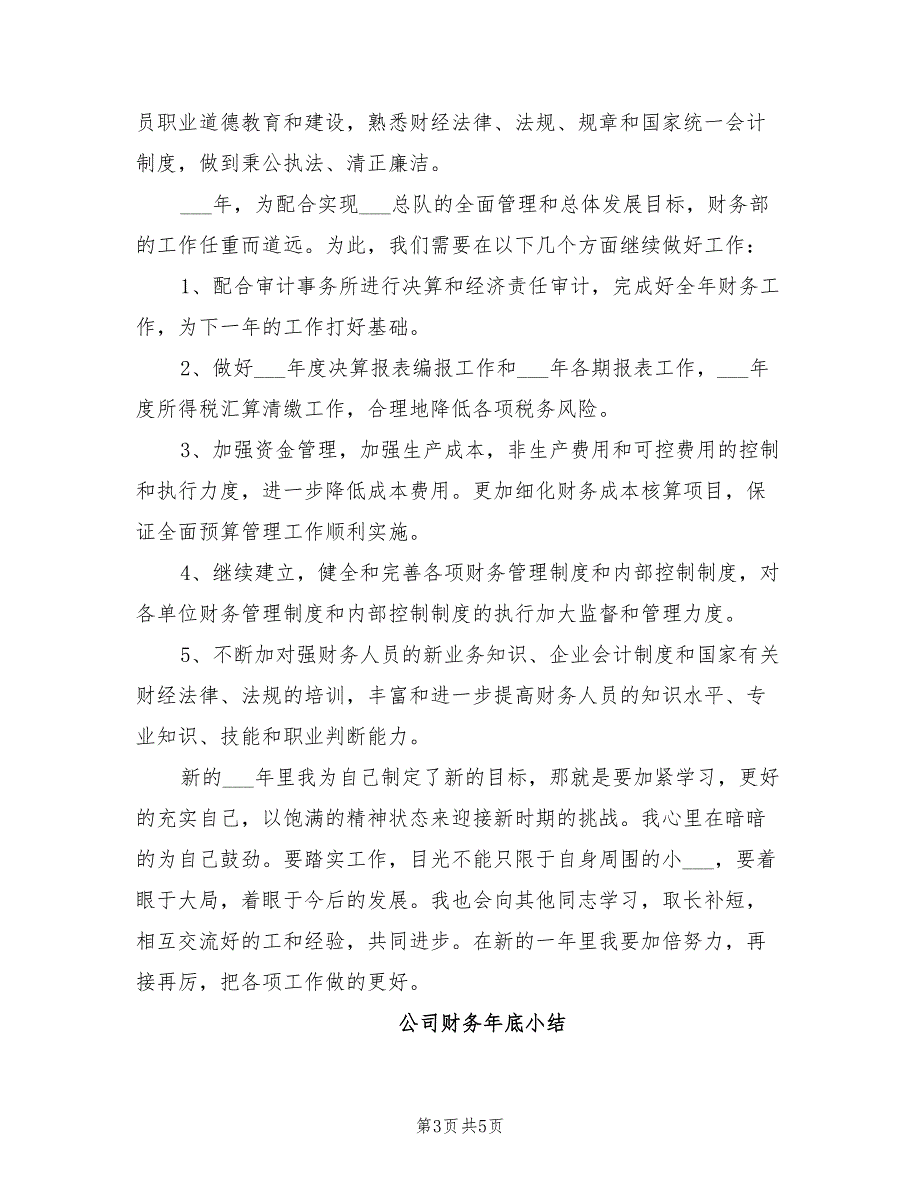 员职业道德教育和建设，熟悉财经法律、法规、规章和国家统一会计
制度，做到秉公执法、清正廉洁。
___年，为配合实现___总队的全面管理和总体发展目标，财务部
的工作任重而道远。为此，我们需要在以下几个方面继续做好工作：
1、配合审计事务所进行决算和经济责任审计，完成好全年财务工
作，为下一年的工作打好基础。
2、做好___年度决算报表编报工作和___年各期报表工作，___年
度所得税汇算清缴工作，合理地降低各项税务风险。
3、加强资金管理，加强生产成本，非生产费用和可控费用的控制
和执行力度，进一步降低成本费用。更加细化财务成本核算项目，保
证全面预算管理工作顺利实施。
4、继续建立，健全和完善各项财务管理制度和内部控制制度，对
各单位财务管理制度和内部控制制度的执行加大监督和管理力度。
5、不断加对强财务人员的新业务知识、企业会计制度和国家有关
财经法律、法规的培训，丰富和进一步提高财务人员的知识水平、专
业知识、技能和职业判断能力。
新的___年里我为自己制定了新的目标，那就是要加紧学习，更好
的充实自己，以饱满的精神状态来迎接新时期的挑战。我心里在暗暗
的为自己鼓劲。要踏实工作，目光不能只限于自身周围的小___，要着
眼于大局，着眼于今后的发展。我也会向其他同志学习，取长补短，
相互交流好的工和经验，共同进步。在新的一年里我要加倍努力，再
接再厉，把各项工作做的更好。
公司财务年底小结
第3页共5页